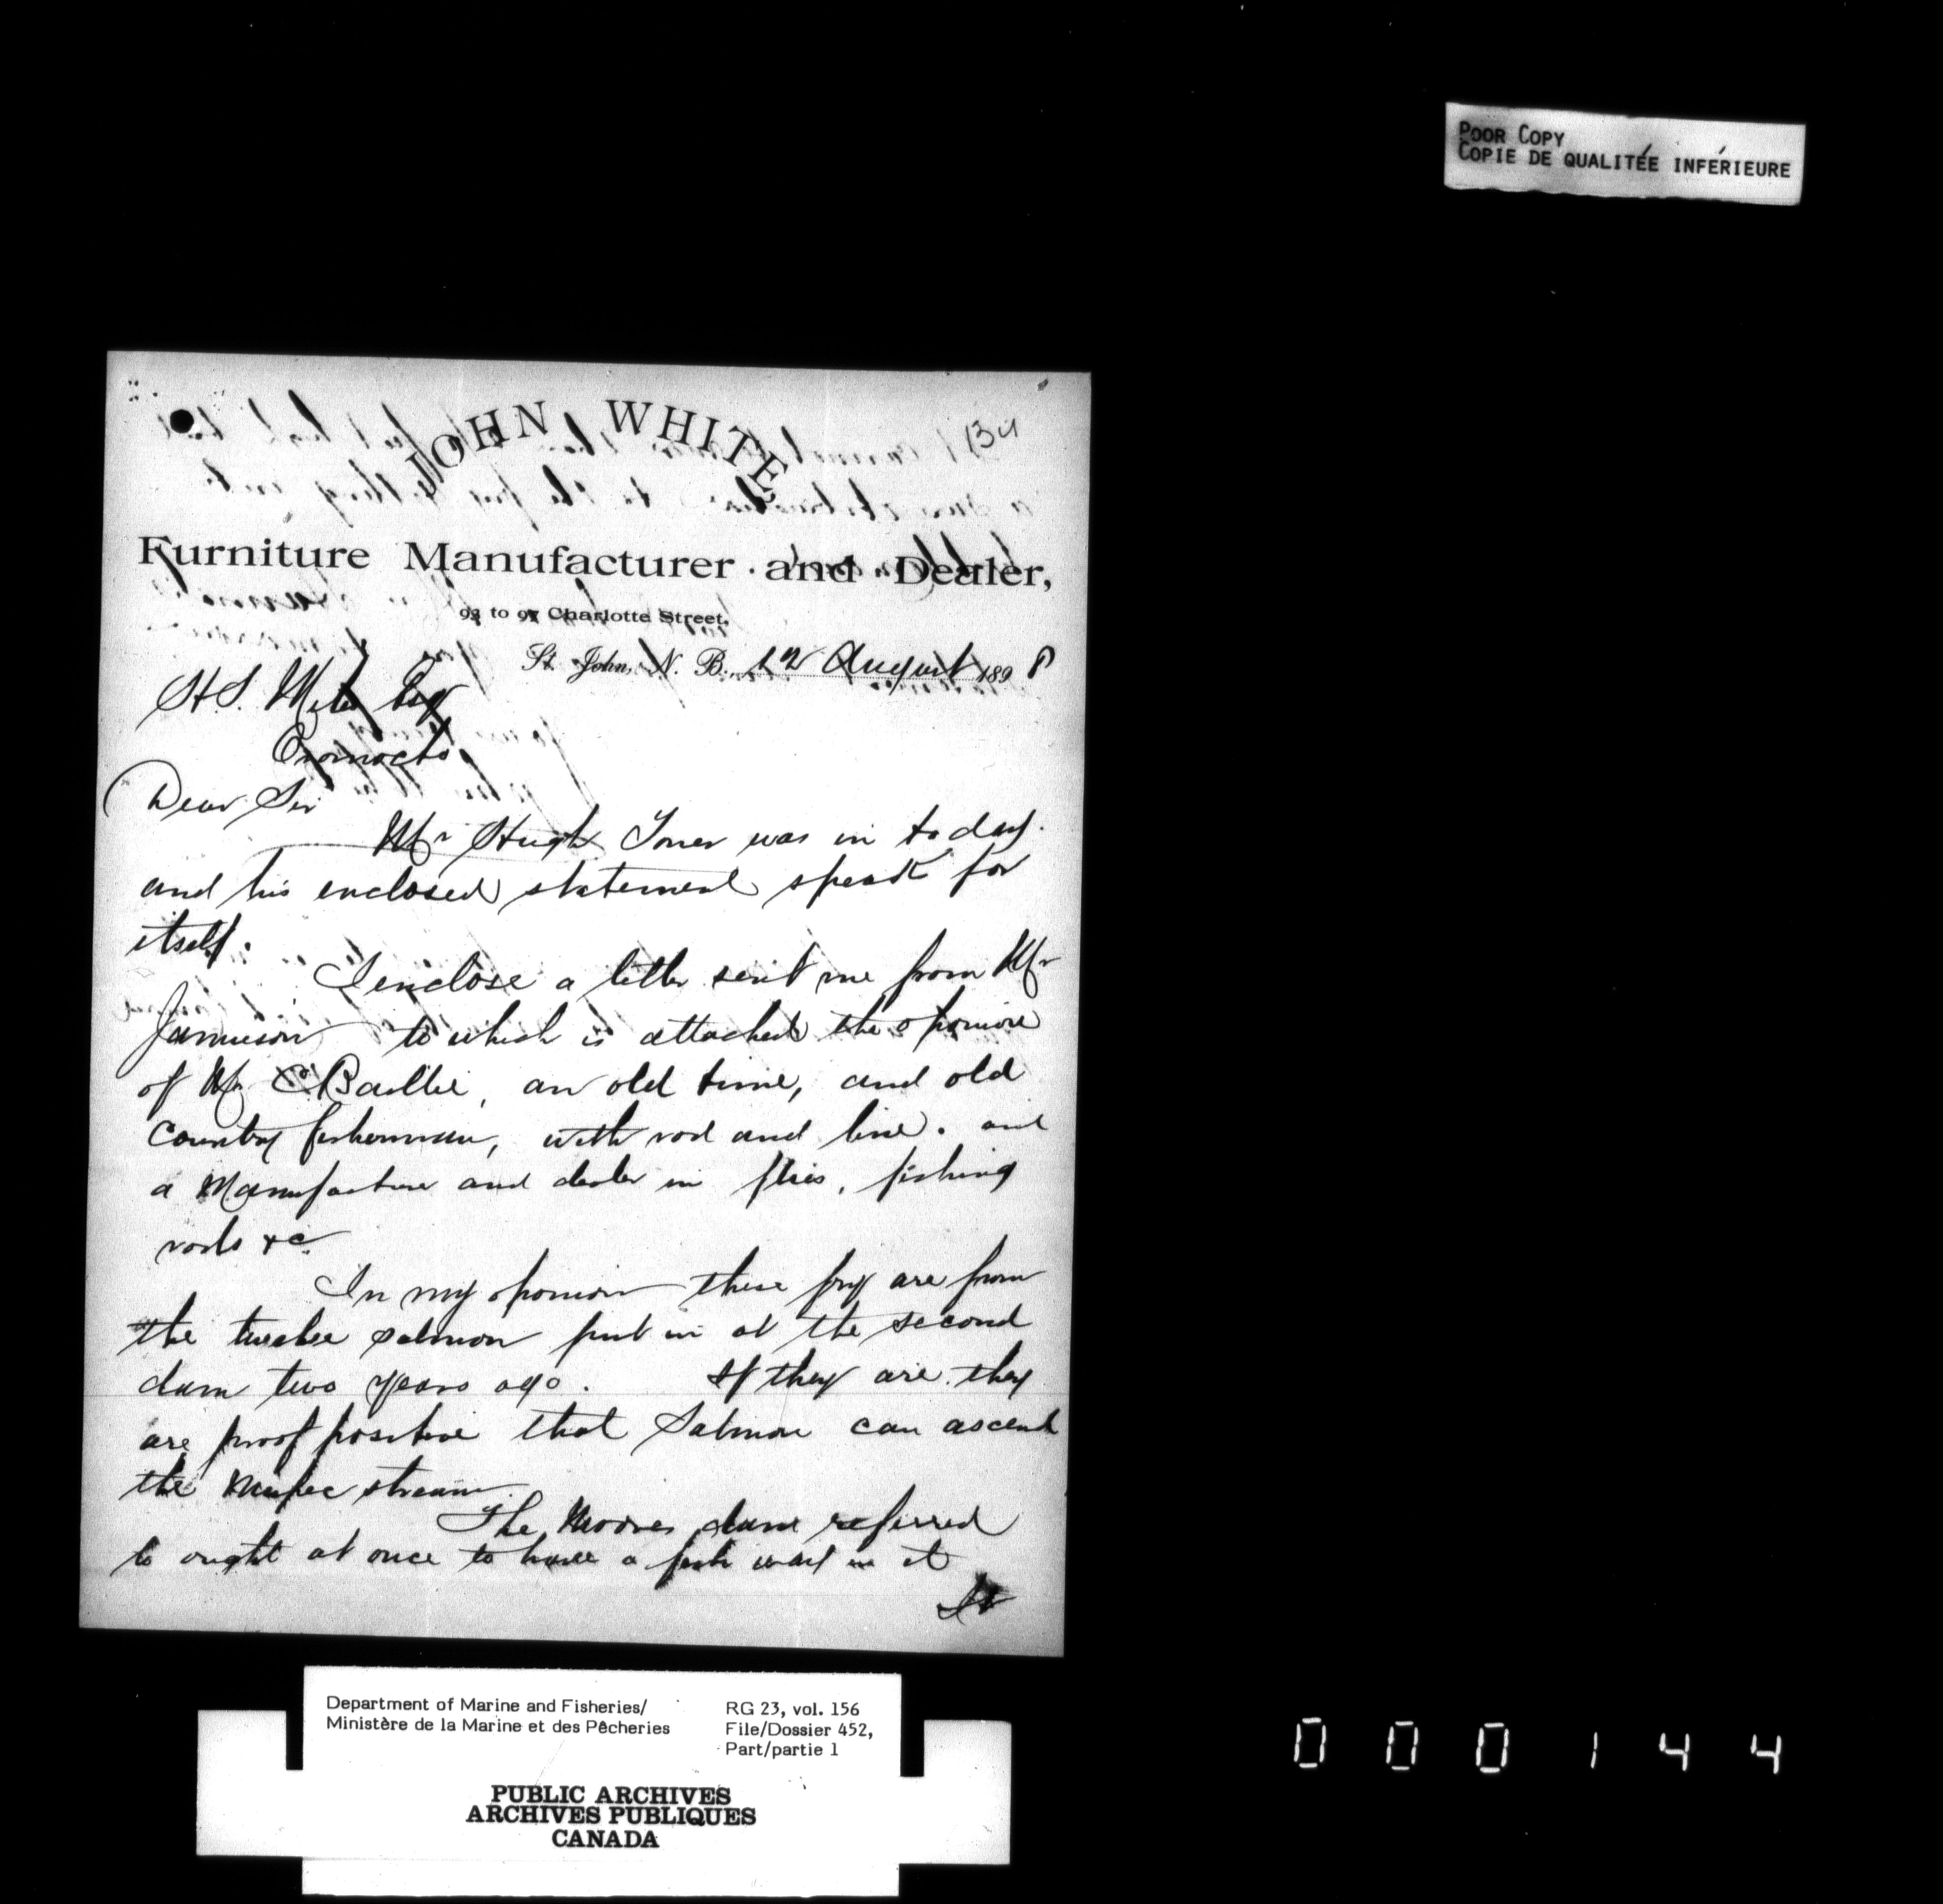 POOR COPY
COPIE DE QUALITÉE INFÉRIEURE
134
JOHN WHITE,
Furniture Manufacturer and Dealer,
93 to 97 Charlotte Street.
St. John, N. B., 12 August 1898
H.S. Miles Esq
Oromocto
Dear Sir
Mr Hugh Toner was in today.
and his enclosed statement speak for
itself.
I enclose a letter sent me from Mr
Jamieson to which is attached the opinion
of Mr Baillie, an old time, and old
country fisherman, with rod and line. and
a Manufacture and dealer in flies, fishing
rods &c.
In my opinion these fry are from
the twelve salmon put in at the second
dam two years ago. If they are they
are proof positive that Salmon can ascend
the Mispec stream.
The Moores dam referred
to ought at once to have a fish way in it
It
Department of Marine and Fisheries/
Ministère de la Marine et des Pêcheries
RG 23, vol. 156
File/Dossier 452,
Part/partie 1
PUBLIC ARCHIVES
ARCHIVES PUBLIQUES
CANADA
000144